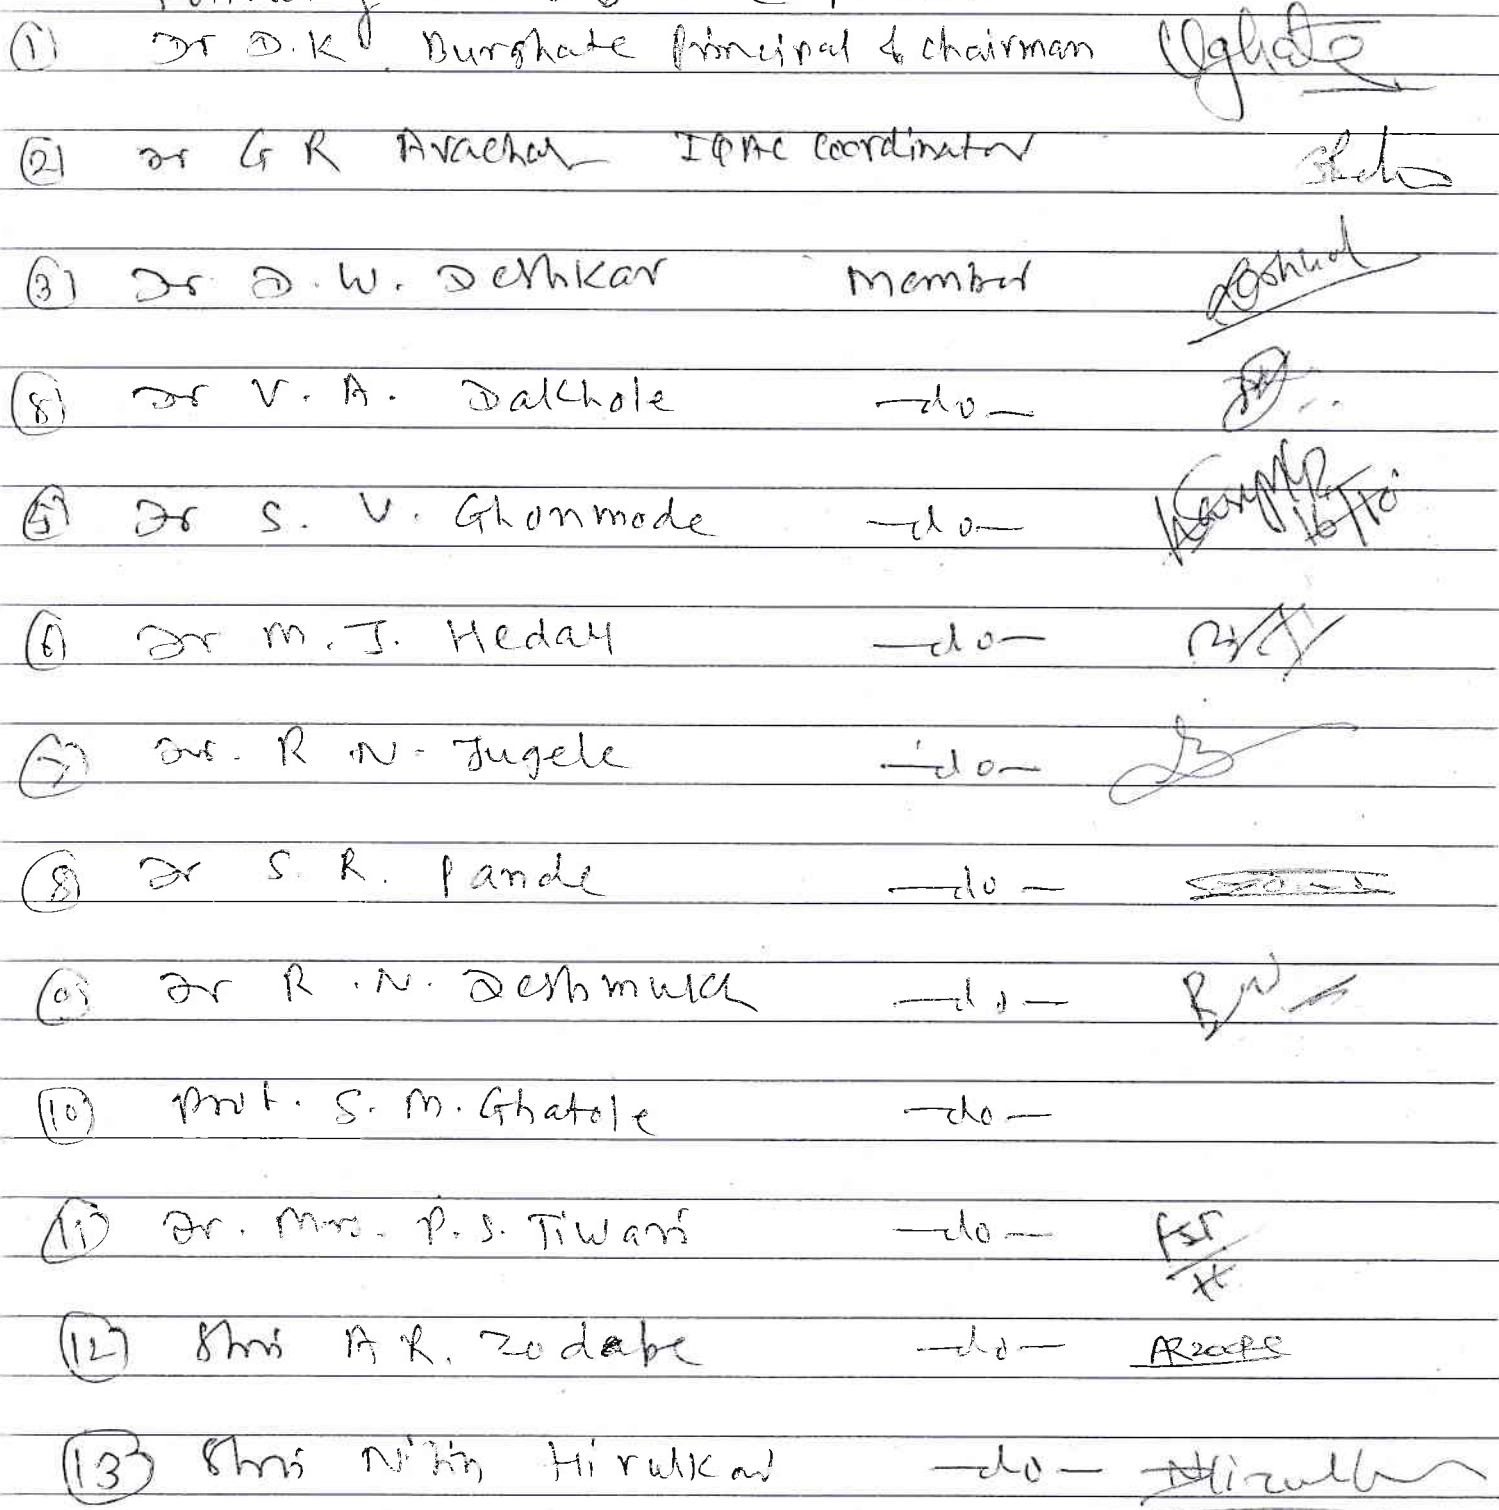 (1) Dr D.K. Burghate Principal & chairman
(2) Dr G R Avachar IQAC Coordinator
(3) Dr. D. W. Deshkar Member
(8) Dr V. A. Dakhole -do-
(5) Dr S. V. Ghonmode -do-
(6) Dr M. J. Heday -do-
(7) Dr. R N. Jugele -do-
(8) Dr S. R. Pande -do-
(9) Dr R. N. Deshmukh -do- RN
(10) Prof. S. M. Ghatole -do-
(11) Dr. Mrs. P. S. Tiwari -do- PST
(12) Shri A R. Zodape -do- ARZodpe
(13) Shri Nitin Hirulkar -do-